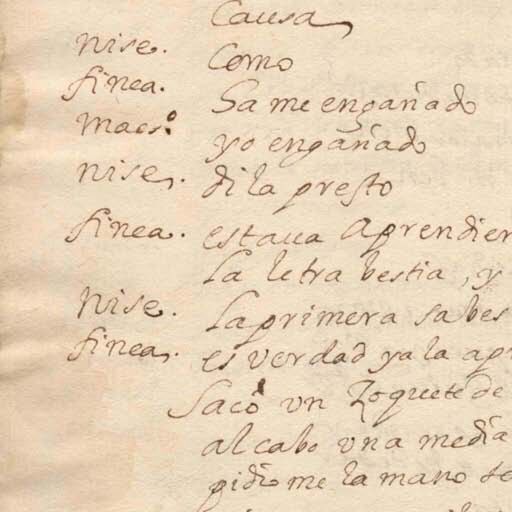 Causa
nise. Como
finea. Sa me engañado
Maes.º yo engañado
nise. di la presto
finea. estaua Aprendien
La letra bestia, y
nise. La primera sabes
finea. es verdad ya la apr
Sacó vn Zoquete de
al cabo vna media
pidio me la mano